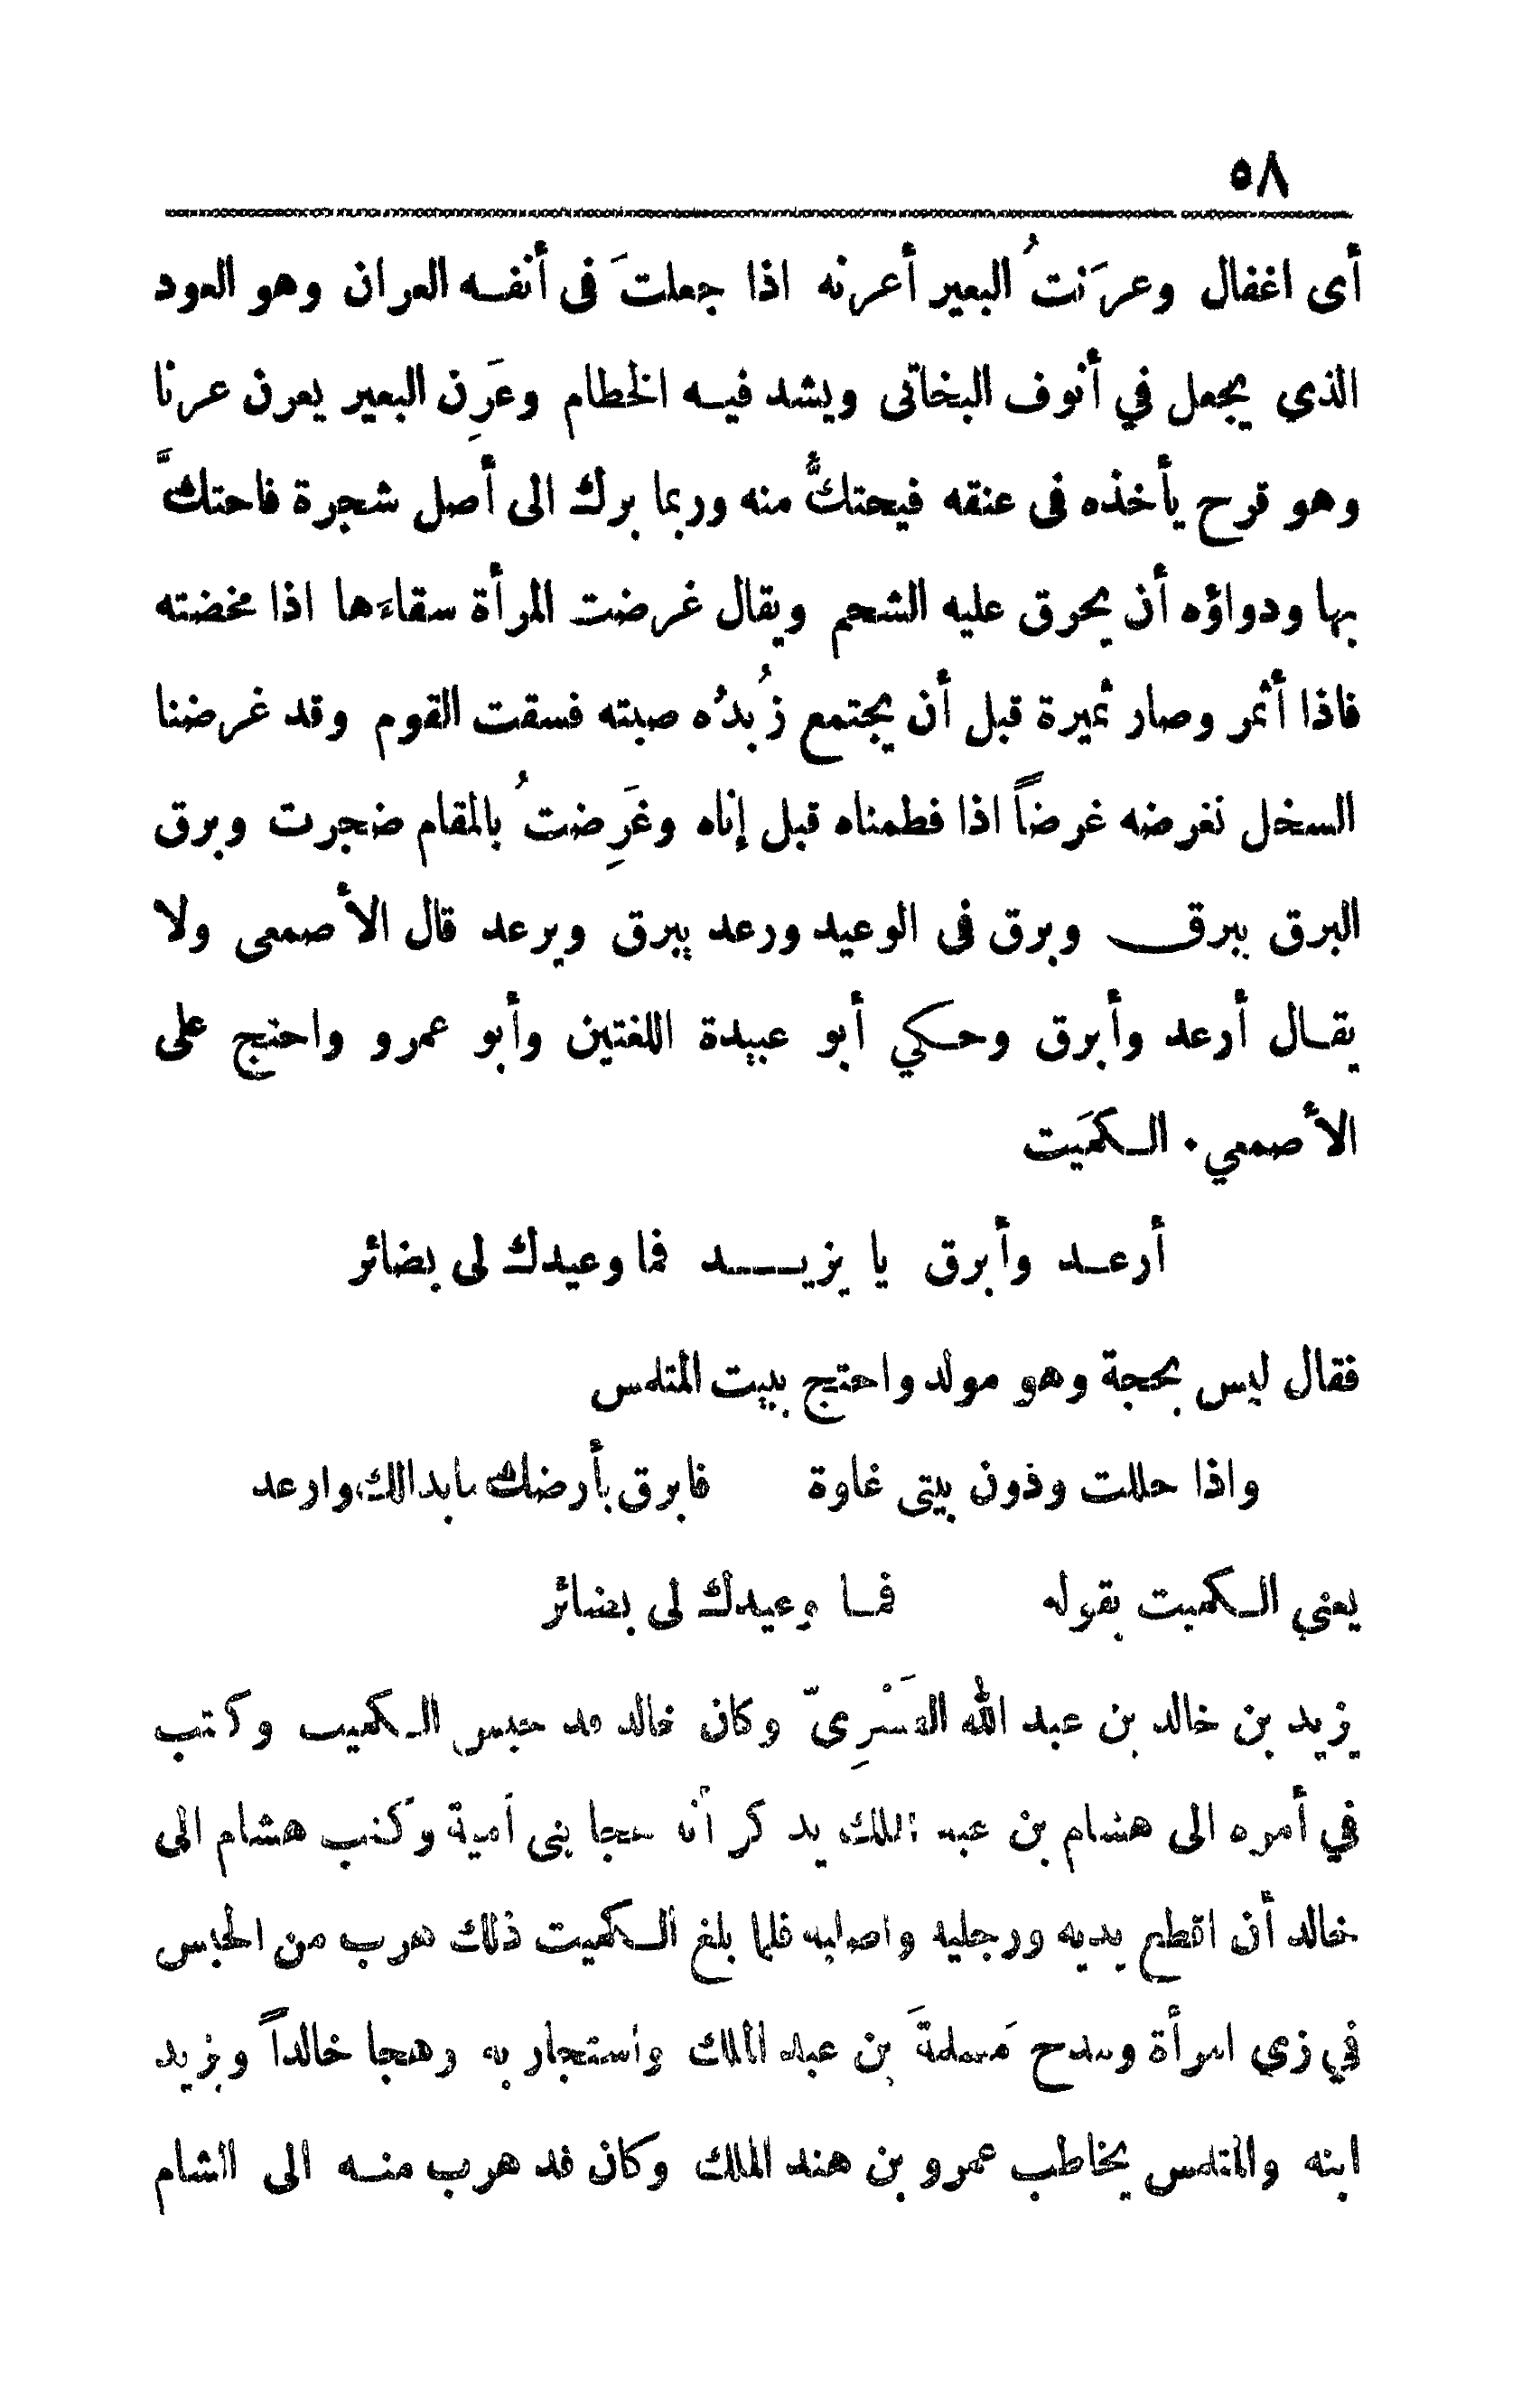 ٥٨
أى اغفال وعرَنتُ البعير أعرنه اذا جعلتَ فى أنفسه العران وهو العود
الذي يجعل في أنوف البخاتى ويشد فيه الخطام وعَرِن البعير يعرن عرنا
وهو قرح يأخذه فى عنقه فيحتكُّ منه وربما برك الى أصل شجرة فاحتكَّ
بها ودواؤه أن يحرق عليه الشحم ويقال غرضت المرأة سقاءَها اذا مخضته
فاذا أثمر وصار ثميرة قبل أن يجتمع زُبدُه صبته فسقت القوم وقد غرضنا
السخل نغرضه غرضاً اذا فطمناه قبل إناه وغَرِضتُ بالمقام ضجرت وبرق
البرق يبرق وبرق فى الوعيد ورعد يبرق ويرعد قال الأصمعى ولا
يقال أرعد وأبرق وحكي أبو عبيدة اللغتين وأبو عمرو واحتج على
الأصمعي٠ الكمَيت
أرعد وأبرق يا يزيد فما وعيدك لى بضائر
فقال ليس بحجة وهو مولد واحتج ببيت المتلمس
واذا حللت ودون بيتى غاوة فابرق بأرضك مابدالك وارعد
يعني الكميت بقوله فما وعيدك لى بضائر
يزيد بن خالد بن عبد الله القَسْرِىّ وكان خالد قد حبس الكميت وكتب
في أمره الى هشام بن عبد الملك يذكر أنه هجا بنى أمية وكتب هشام الى
خالد أن اقطع يديه ورجليه واصلبه فلما بلغ الكميت ذلك هرب من الحبس
في زي امرأة ومدح مَسلمةَ بن عبد الملك واستجار به وهجا خالداً ويزيد
ابنه والمتلمس يخاطب عمرو بن هند الملك وكان قد هرب منه الى الشام